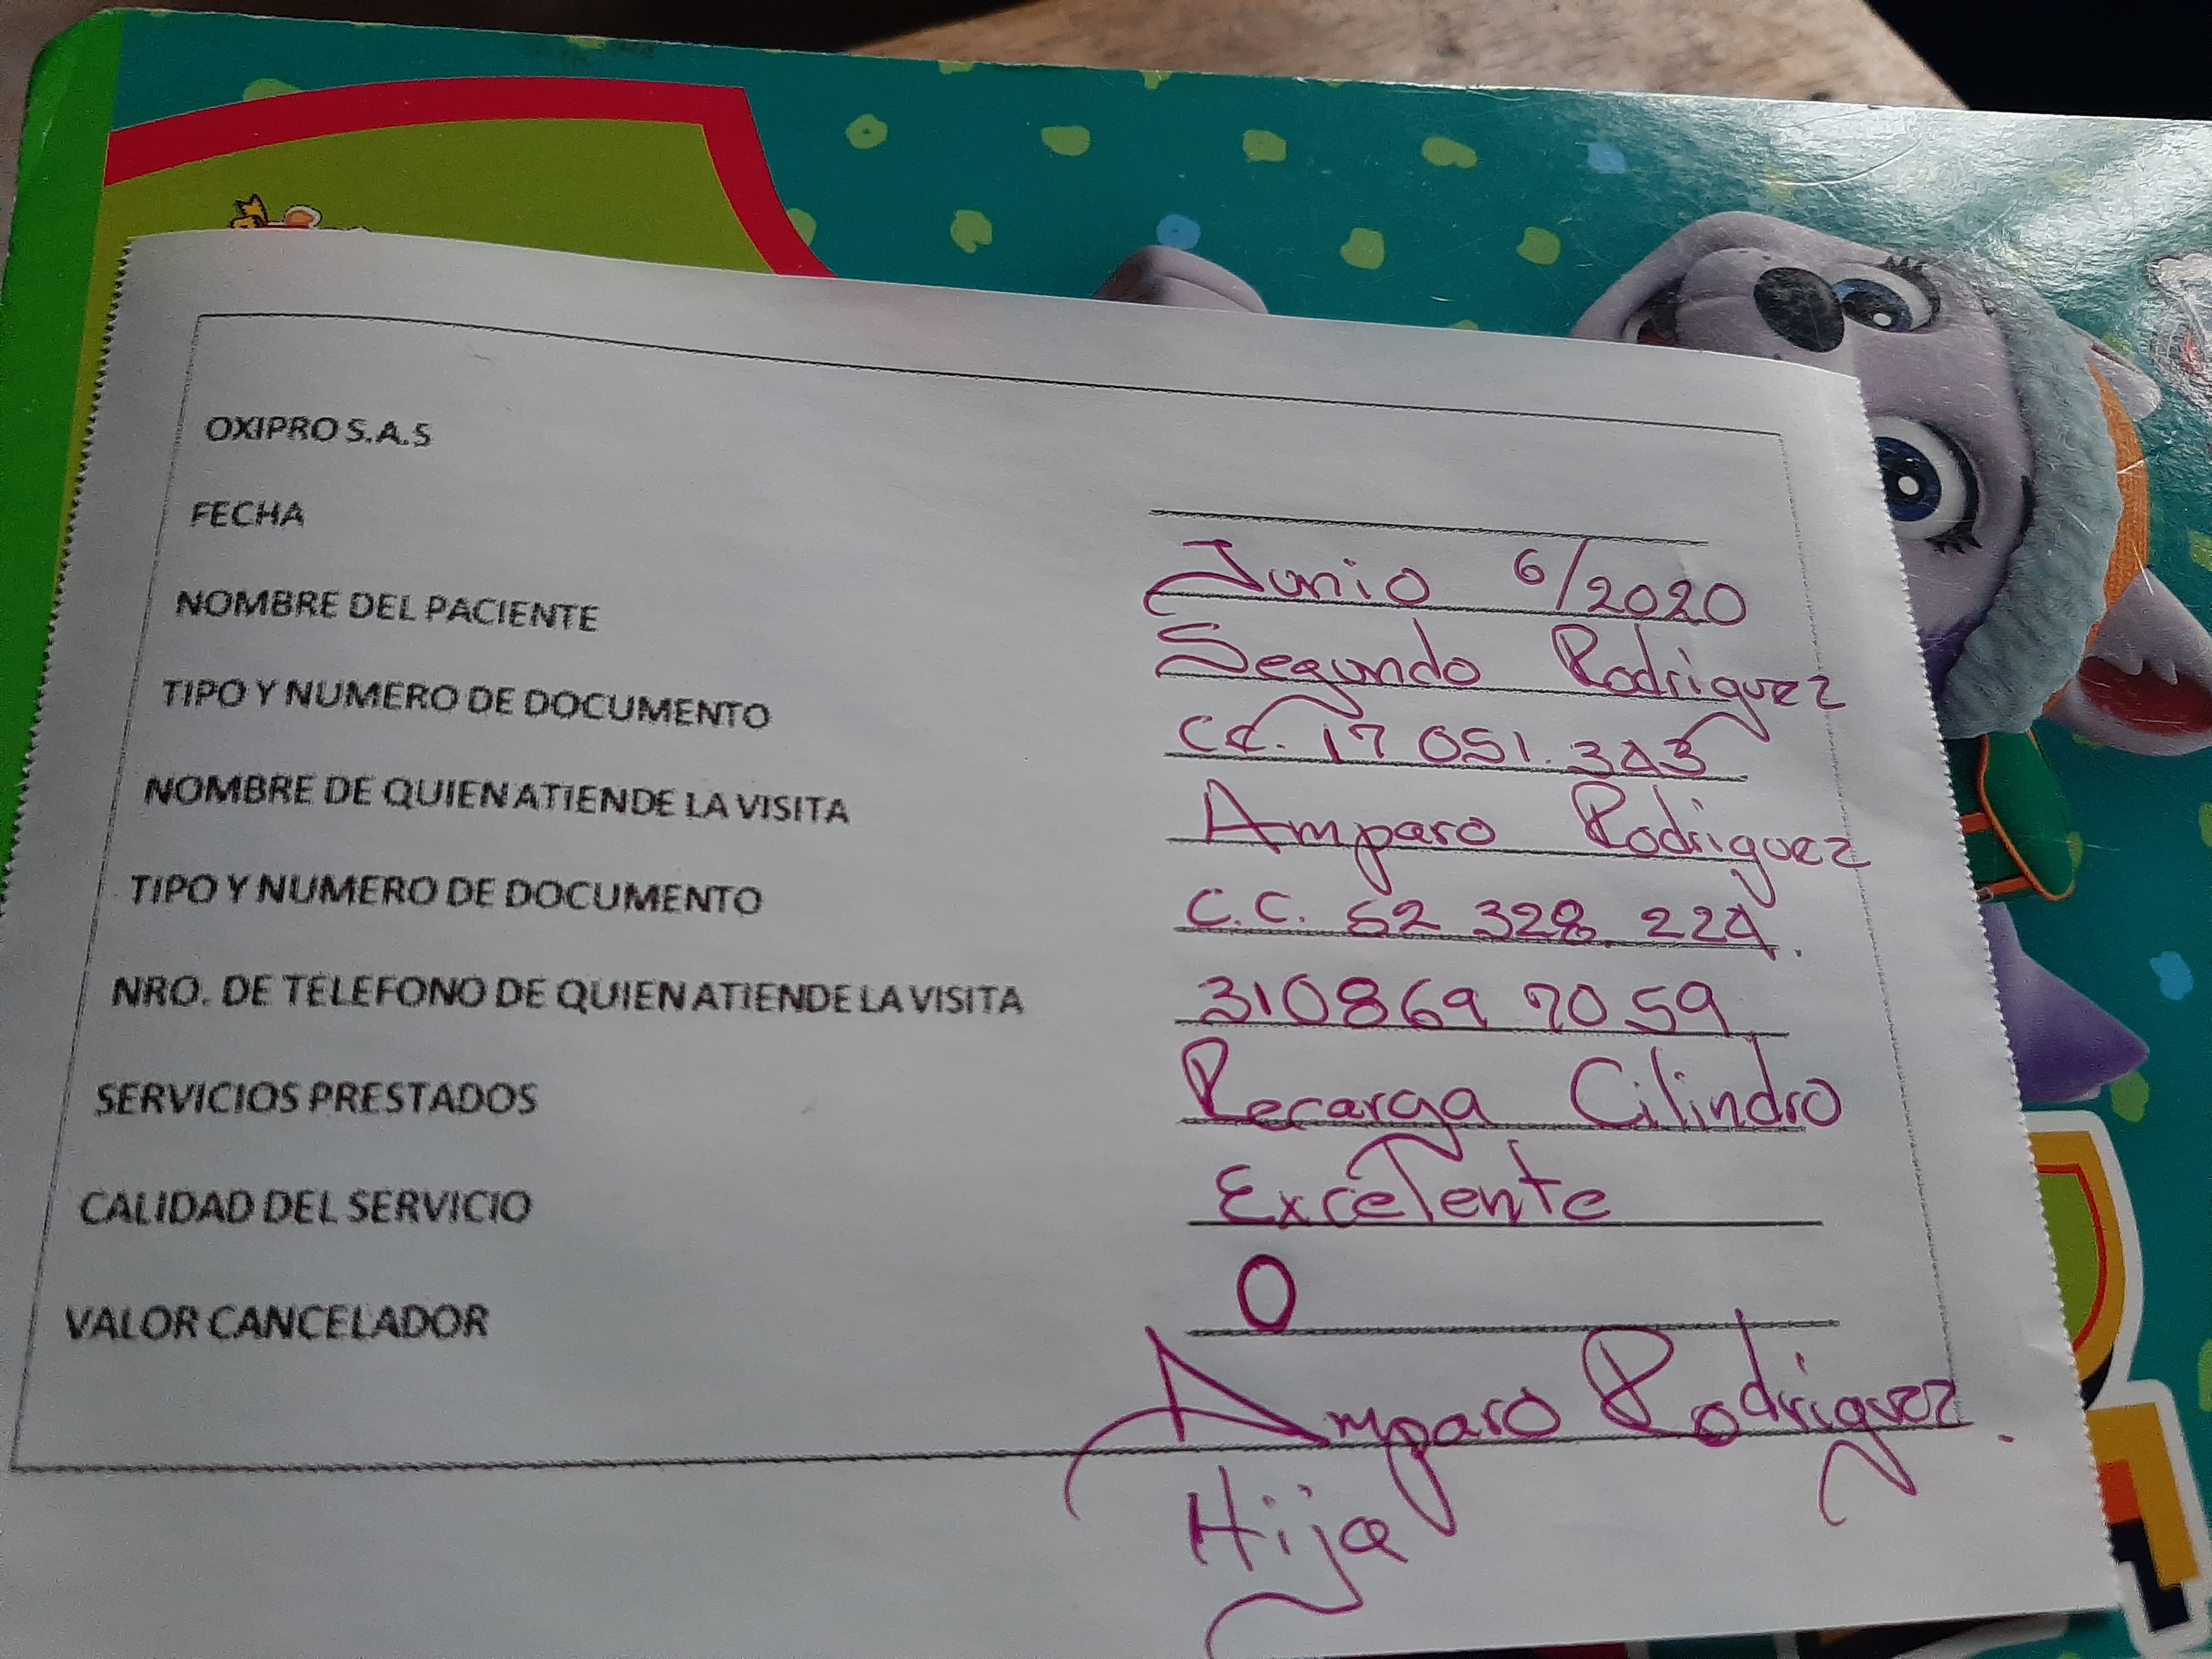 OXIPRO S.A.S
FECHA Junio 6/2020
NOMBRE DEL PACIENTE Segundo Rodriguez
TIPO Y NUMERO DE DOCUMENTO CC. 17 051.343
NOMBRE DE QUIEN ATIENDE LA VISITA Amparo Rodriguez
TIPO Y NUMERO DE DOCUMENTO C.C. 52 328 224.
NRO. DE TELEFONO DE QUIEN ATIENDE LA VISITA 310869 7059
SERVICIOS PRESTADOS Recarga Cilindro
CALIDAD DEL SERVICIO Excelente
VALOR CANCELADOR 0
Amparo Rodriguez.
Hija